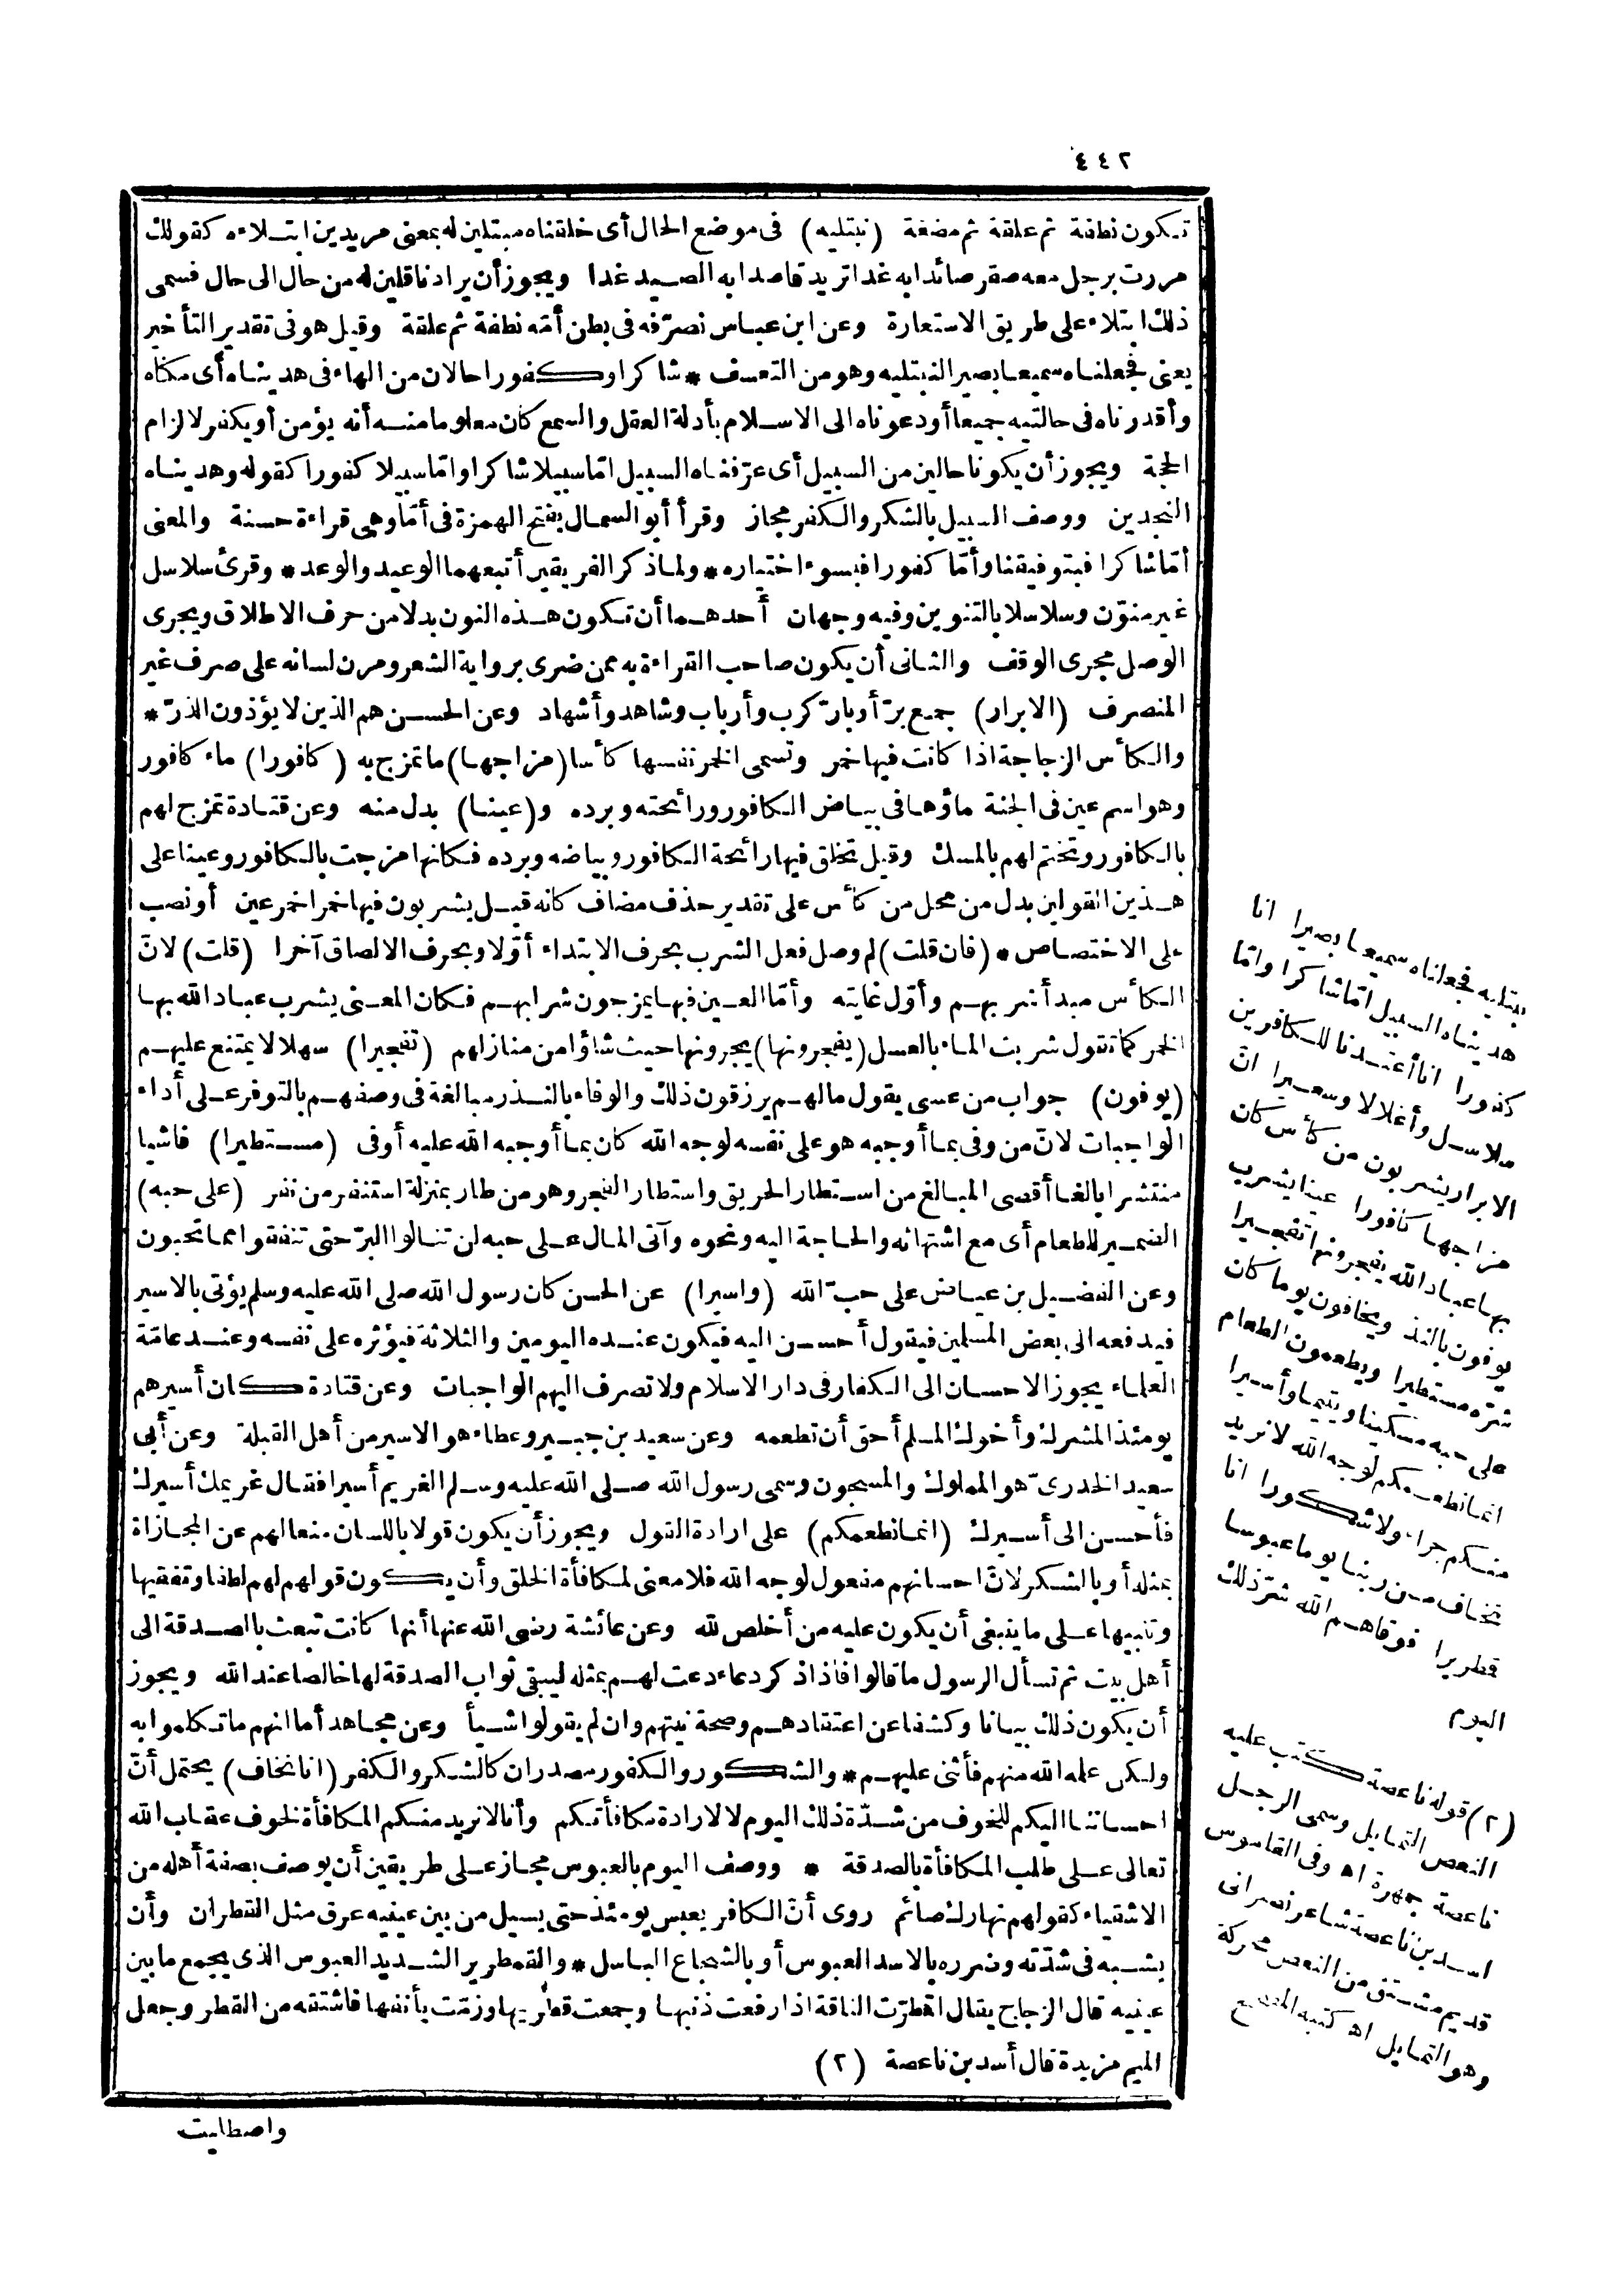 ٤٤٢
تكون نطفة ثم علقة ثم مضغة (نبتليه) فى موضع الحال أى خلقناه مبتلين له بمعنى مريدين ابتلاءه كقولك
مررت برجل معه صقر صائدا به غدا تريد قاصدا به الصيد غدا ويجوز أن يراد ناقلين له من حال الى حال فسمى
ذلك ابتلاء على طريق الاستعارة وعن ابن عباس نصرّفه فى بطن أمّه نطفة ثم علقة وقيل هو فى تقدير التأخير
يعنى فجعلناه سميعا بصيرا لنبتليه وهو من التعسف * شاكرا وكفورا حالان من الهاء فى هديناه أى مكناه
وأقدرناه فى حالتيه جميعا أو دعوناه الى الاسلام بأدلة العقل والسمع كان معلوما منه أنه يؤمن أو يكفر لالزام
الحجة ويجوز أن يكونا حالين من السبيل أى عرّفناه السبيل امّا سبيلا شاكرا وامّا سبيلا كفورا كقوله وهديناه
النجدين ووصف السبيل بالشكر والكفر مجاز وقرأ أبو السمال بفتح الهمزة فى أمّا وهى قراءة حسنة والمعنى
أمّا شاكرا فبتوفيقنا وأمّا كفورا فبسوء اختياره * ولما ذكر الفريقين أتبعهما الوعيد والوعد * وقرئ سلاسل
غير منوّن وسلاسلا بالتنوين وفيه وجهان أحدهما أن تكون هذه النون بدلا من حرف الاطلاق ويجرى
الوصل مجرى الوقف والثانى أن يكون صاحب القراءة به ممن ضرى برواية الشعر ومرن لسانه على صرف غير
المنصرف (الابرار) جمع برّ أو بارّ كرب وأرباب وشاهد وأشهاد وعن الحسن هم الذين لا يؤذون الذرّ *
والكأس الزجاجة اذا كانت فيها خمر وتسمى الخمر نفسها كأسا (مزاجها) ما تمزج به (كافورا) ماء كافور
وهو اسم عين فى الجنة ماؤها فى بياض الكافور ورائحته وبرده و(عينا) بدل منه وعن قتادة تمزج لهم
بالكافور وتختم لهم بالمسك وقيل تخلق فيها رائحة الكافور وبياضه وبرده فكانها مزجت بالكافور وعينا على
هذين القولين بدل من محل من كأس على تقدير حذف مضاف كانه قيل يشربون فيها خمرا خمر عين أو نصب
على الاختصاص * (فان قلت) لم وصل فعل الشرب بحرف الابتداء أوّلا وبحرف الالصاق آخرا (قلت) لانّ
الكأس مبدأ شربهم وأوّل غايته وأمّا العين فبها يمزجون شرابهم فكان المعنى يشرب عباد الله بها
الخمر كما تقول شربت الماء بالعسل (يفجرونها) يجرونها حيث شاؤا من منازلهم (تفجيرا) سهلا لا يمتنع عليهم
(يوفون) جواب من عسى يقول مالهم يرزقون ذلك والوفاء بالنذر مبالغة فى وصفهم بالتوفر على أداء
الواجبات لانّ من وفى بما أوجبه هو على نفسه لوجه الله كان بما أوجبه الله عليه أوفى (مستطيرا) فاشيا
منتشرا بالغا أقصى المبالغ من استطار الحريق واستطار الفجر وهو من طار بمنزلة استنفر من نفر (على حبه)
الضمير للطعام أى مع اشتهائه والحاجة اليه ونحوه وآتى المال على حبه لن تنالوا البرّ حتى تنفقوا مما تحبون
وعن الفضيل بن عياض على حبّ الله (واسيرا) عن الحسن كان رسول الله صلى الله عليه وسلم يؤتى بالاسير
فيدفعه الى بعض المسلمين فيقول أحسن اليه فيكون عنده اليومين والثلاثة فيؤثره على نفسه وعند عامّة
العلماء يجوز الاحسان الى الكفار فى دار الاسلام ولا تصرف اليهم الواجبات وعن قتادة كان أسيرهم
يومئذ المشرك وأخوك المسلم أحق أن تطعمه وعن سعيد بن جبير وعطاء هو الاسير من أهل القبلة وعن أبى
سعيد الخدرىّ هو المملوك والمسجون وسمى رسول الله صلى الله عليه وسلم الغريم أسيرا فقال غريمك أسيرك
فأحسن الى أسيرك (انما نطعمكم) على ارادة القول ويجوز أن يكون قولا باللسان منعا لهم عن المجازاة
بمثله أو بالشكر لانّ احسانهم مفعول لوجه الله فلا معنى لمكافأة الخلق وأن يكون قولهم لهم لطفا وتفقيها
وتنبيها على ما ينبغى أن يكون عليه من أخلص لله وعن عائشة رضى الله عنها أنها كانت تبعث بالصدقة الى
أهل بيت ثم تسأل الرسول ما قالوا فاذا ذكر دعاء دعت لهم بمثله ليبقى ثواب الصدقة لها خالصا عند الله ويجوز
أن يكون ذلك بيانا وكشفا عن اعتقادهم وصحة نيتهم وان لم يقولوا شيأ وعن مجاهد أما انهم ما تكلموا به
ولكن علمه الله منهم فأثنى عليهم * والشكور والكفور مصدران كالشكر والكفر (انا نخاف) يحتمل أنّ
احساننا اليكم للخوف من شدّة ذلك اليوم لا لارادة مكافأتكم وأنا لا نريد منكم المكافأة لخوف عقاب الله
تعالى على طلب المكافأة بالصدقة * ووصف اليوم بالعبوس مجاز على طريقين أن يوصف بصفة أهله من
الاشقياء كقولهم نهارك صائم روى أنّ الكافر يعبس يومئذ حتى يسيل من بين عينيه عرق مثل القطران وأن
يشبه فى شدّته وضرره بالاسد العبوس أو بالشجاع الباسل * والقمطرير الشديد العبوس الذى يجمع ما بين
عينيه قال الزجاج يقال اقمطرّت الناقة اذا رفعت ذنبها وجمعت قطريها وزمّت بأنفها فاشتقه من القطر وجعل
الميم مزيدة قال أسد بن ناعصة (٢)
واصطليت
نبتليه فجعلناه سميعا بصيرا انا
هديناه السبيل امّا شاكرا وامّا
كفورا انا أعتدنا للكافرين
سلاسل وأغلالا وسعيرا انّ
الابرار يشربون من كأس كان
مزاجها كافورا عينا يشرب
بها عباد الله يفجرونها تفجيرا
يوفون بالنذر ويخافون يوما كان
شرّه مستطيرا ويطعمون الطعام
على حبه مسكينا ويتيما وأسيرا
انما نطعمكم لوجه الله لا نريد
منكم جزاء ولا شكورا انا
نخاف من ربنا يوما عبوسا
قمطريرا فوقاهم الله شرّ ذلك
اليوم
(٢) قوله ناعصة كتب عليه
النعص التمايل وسمى الرجل
ناعصة جمهرة اه وفى القاموس
اسد بن ناعصة شاعر نصرانى
قديم مشتق من النعص محركة
وهو التمايل اه كتبه المصحح